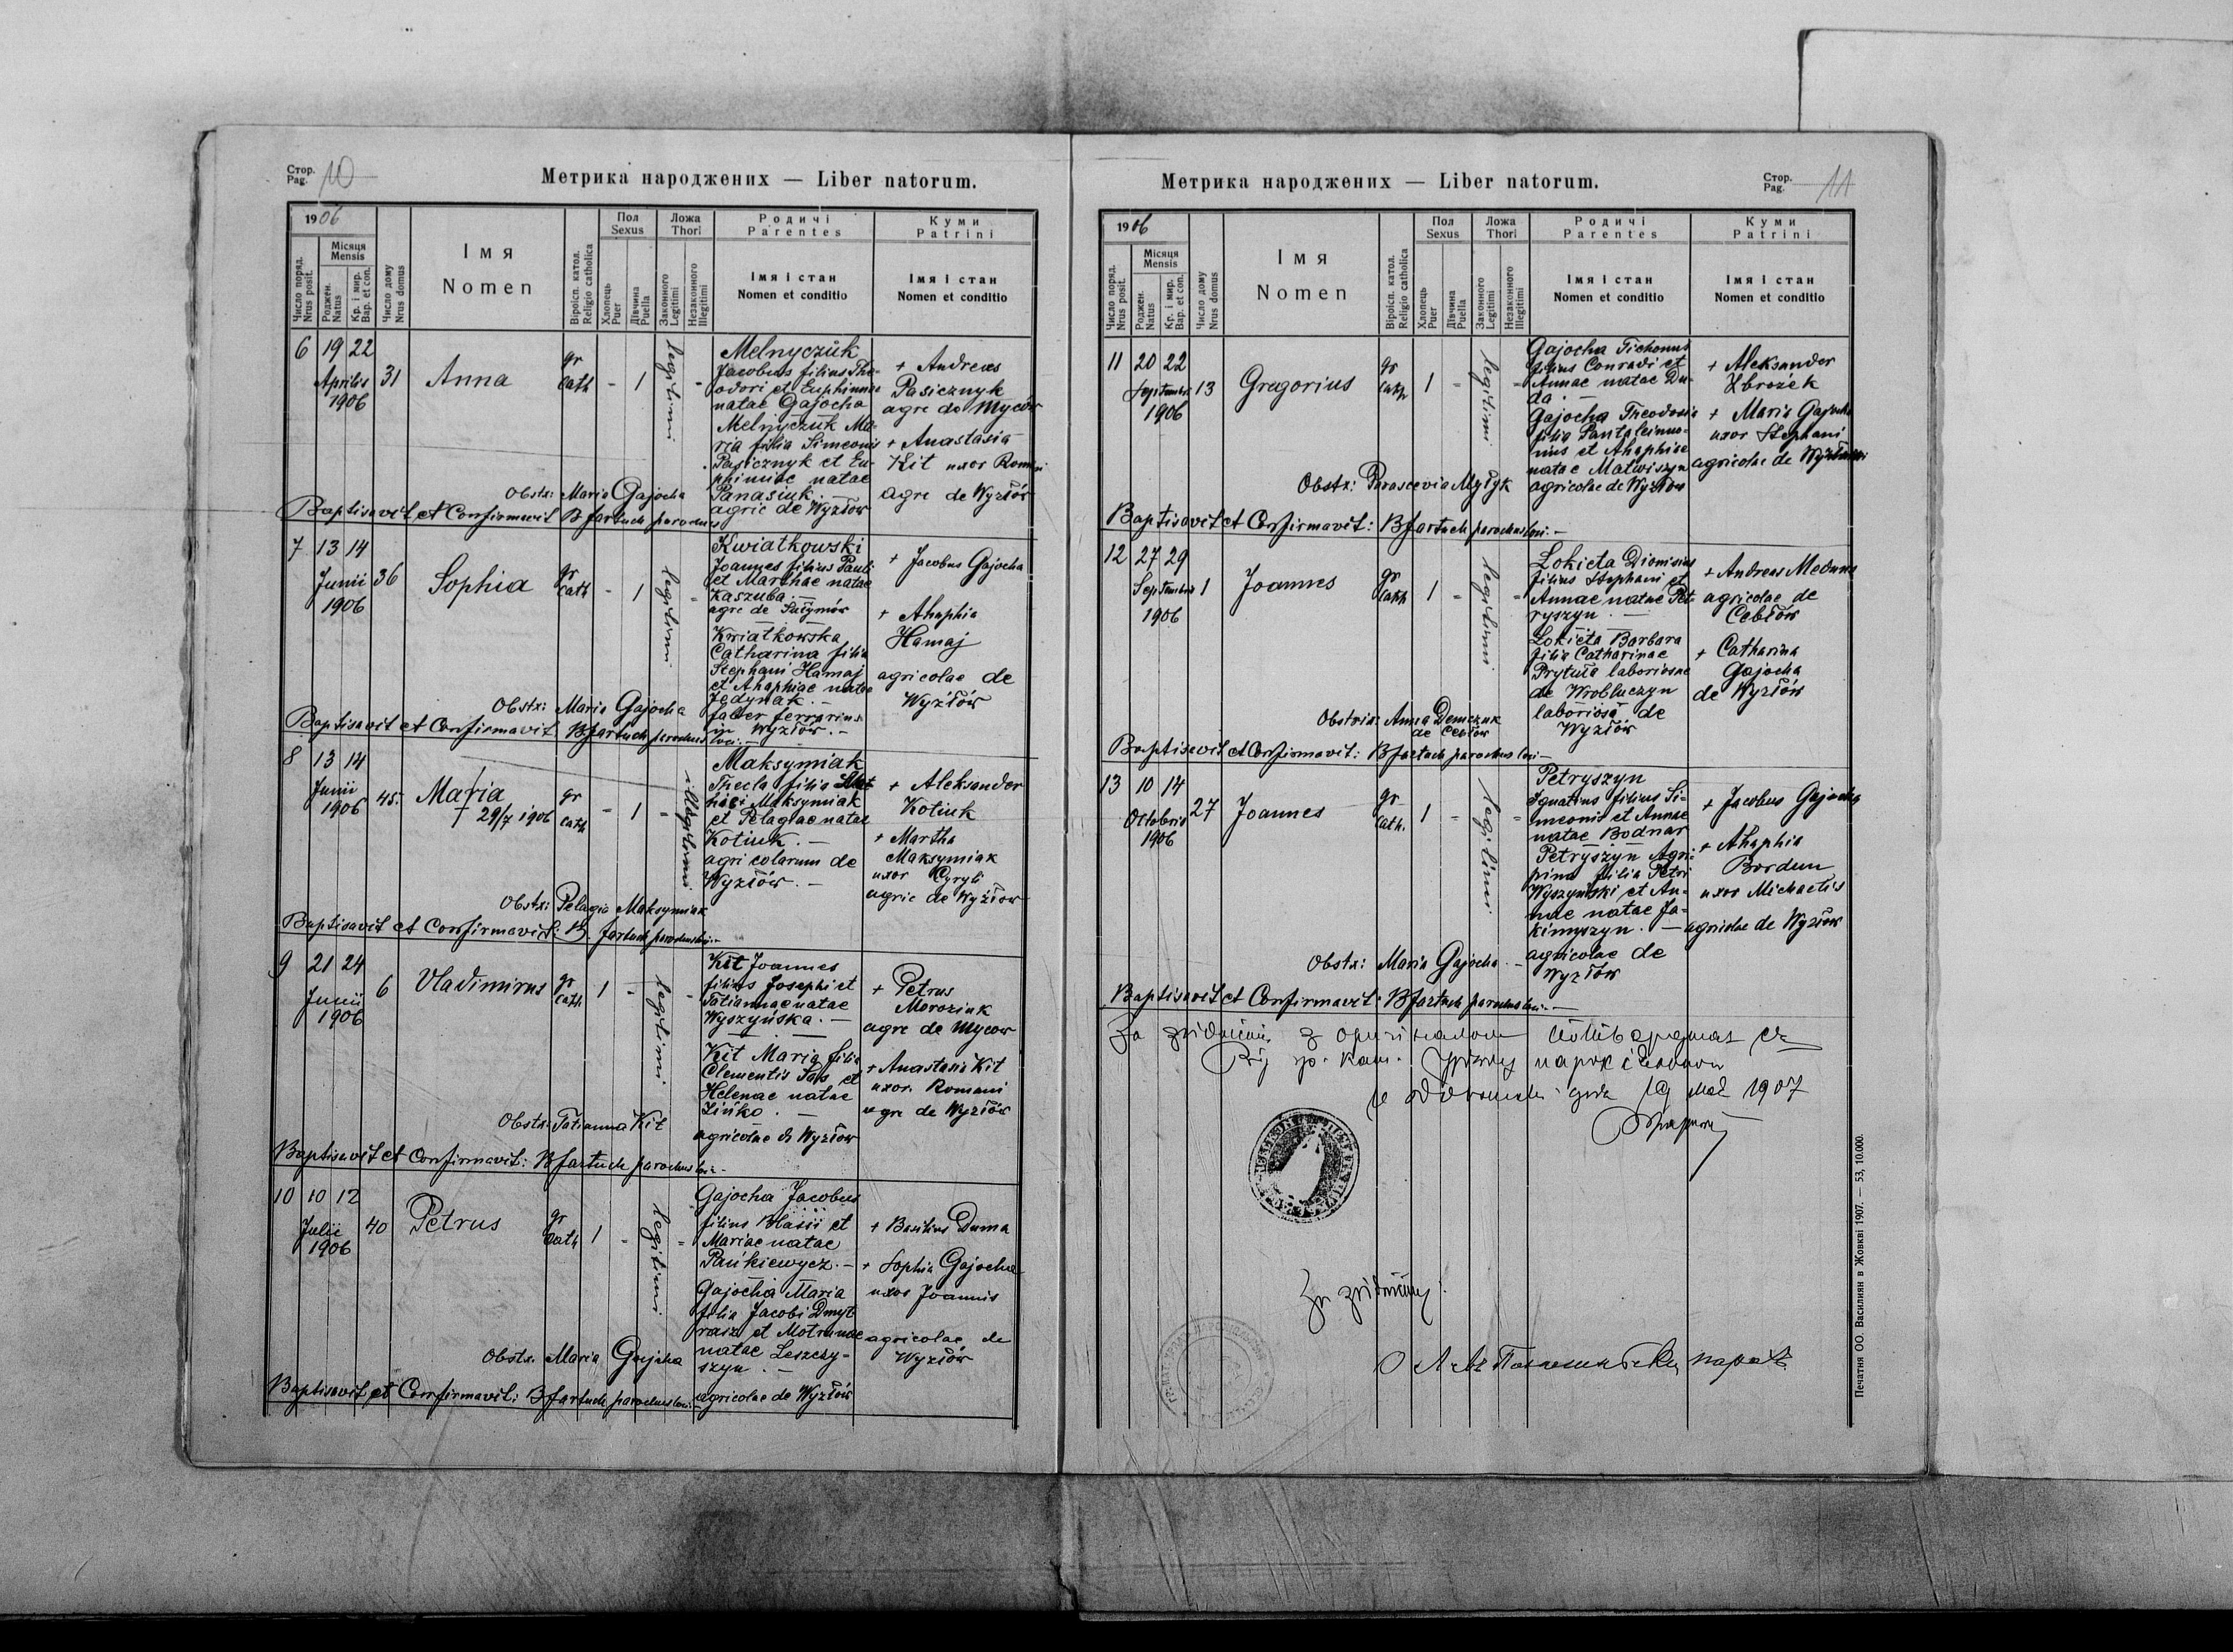 Стор.
Pag. 10
Метрика народжених — Liber natorum.
1906
Число поряд.
Nrus posit.
Місяця
Mensis
Роджен.
Natus
Кр. і мир.
Bap. et con.
Число дому
Nrus domus
Імя
Nomen
Віроісп. катол.
Religio catholica
Пол
Sexus
Хлопець
Puer
Дївчина
Puella
Ложа
Thori
Законного
Legitimi
Незаконного
Illegitimi
Родичі
Parentes
Імя і стан
Nomen et conditio
Куми
Patrini
Імя і стан
Nomen et conditio
6 19 22
Aprilis
1906
31
Anna
gr
cath
- 1
legitimi
-
Melnyczuk
Jacobus filius The-
odori et Euphimiae
natae Gajocha
Melnyczuk Ma-
ria filia Simeonis
Pasicznyk et Eu-
phimiae natae
Panasiuk. —
agric de Wyzłów
+ Andreas
Pasicznyk
agre de Myców
+ Anastasia
Kit uxor Romani
agre de Wyzłów
Obstx: Maria Gajocha
Baptisavit et Confirmavit B Jartuch parochus
7 13 14
Junii
1906
36
Sophia
gr
cath
- 1
legitimi
-
Kwiatkowski
Joannes filius Pauli
et Marthae natae
Kaszuba. —
agre de
Kwiatkowska
Catharina filia
Stephani Hamaj
et Ahaphiae natae
Jedynak. —
faber ferrarius
in Wyzłów. —
+ Jacobus Gajocha
+ Ahaphia
Hamaj
agricolae de
Wyzłów
Obstx: Maria Gajocha
Baptisavit et Confirmavit B Jartuch parochus loci. —
8 13 14
Junii
1906
45.
Maria
† 29/7 1906
gr
cath
- 1 -
illegitimi
Maksymiak
Thecla filia
Maksymiak
et Pelagiae natae
Kotiuk. —
agricolarum de
Wyzłów. —
+ Aleksander
Kotiuk
+ Martha
Maksymiak
uxor Cyryli
agric de Wyzłów
Obstx: Pelagia Maksymiak
Baptisavit et Confirmavit: B. Jartuch parochus loci. —
9 21 24
Junii
1906
6
Vladimirus
gr
cath
1 -
legitimi
-
Kit Joannes
filius Josephi et
Tatiannae natae
Wyszyńska. —
Kit Maria filia
Clementis Sas et
Helenae natae
Zińko. —
agricolae de Wyzłów
+ Petrus
Moroziuk
agre de Mycow
+ Anastasia Kit
uxor Romani
agre de Wyzłów
Obstx: Tatianna Kit
Baptisavit et Confirmavit: B Jartuch parochus loci. —
10 10 12
Julii
1906
40
Petrus
gr
cath
1 -
legitimi
-
Gajocha Jacobus
filius Blasii et
Mariae natae
Pańkiewycz. —
Gajocha Maria
filia Jacobi Dmyt-
rasz et Motrunae
natae Leszczy-
szyn. —
agricolae de Wyzłów
+ Basilius Duma
+ Sophia Gajocha
uxor Joannis
agricolae de
Wyzłów
Obstx. Maria Gajocha
Baptisavit et Confirmavit: B Jartuch parochus loci. —
Метрика народжених — Liber natorum.
Стор.
Pag. 11
1906
Число поряд.
Nrus posit.
Місяця
Mensis
Роджен.
Natus
Кр. і мир.
Bap. et con.
Число дому
Nrus domus
Імя
Nomen
Віроісп. катол.
Religio catholica
Пол
Sexus
Хлопець
Puer
Дївчина
Puella
Ложа
Thori
Законного
Legitimi
Незаконного
Illegitimi
Родичі
Parentes
Імя і стан
Nomen et conditio
Куми
Patrini
Імя і стан
Nomen et conditio
11 20 22
Septembris
1906
13
Gregorius
gr
cath
1 -
legitimi
-
Gajocha Tichonus
filius Conradi et
Annae natae Du-
da. —
Gajocha Theodosia
filia
et Ahaphiae
natae Matwiszyn
agricolae de Wyzłów
+ Aleksander
Zbrożek
+ Maria Gajocha
uxor Stephani
agricolae de
Obstx: Parascevia
Baptisavit et Confirmavit: B Jartuch parochus loci. —
12 27 29
Septembris
1906
1
Joannes
gr
cath
1 -
legitimi
-
Lokieta Dionisius
filius Stephani et
Annae natae Pet-
ryszyn. —
Lokieta Barbara
filia Catharinae
Prytuła laboriosae
de Wrobluczyn
laboriosi de
Wyzłów
+ Andreas
agricolae de
Cebłów
+ Catharina
Gajocha
de Wyzłów
Obstxix: Anna Demczuk
de Cebłów
Baptisavit et Confirmavit: B Jartuch parochus loci —
13 10 14
Octobris
1906
27
Joannes
gr
cath.
1 -
legitimi
-
Petryszyn
Ignatius filius Si-
meonis et Annae
natae Bodnar
Petryszyn Agri-
pina filia Petri
Wyszyński et An-
nae natae Ja-
kimyszyn. —
agricolae de
Wyzłów
+ Jacobus Gajocha
+ Ahaphia
Bordun
uxor Michaelis
agricolae de Wyzłów
Obstx: Maria Gajocha. —
Baptisavit et Confirmavit: B Jartuch parochus loci. —
За згідність з оригіналом
гр. кат. Уряд парохіяльний
дня 19 мая 1907
За згідність:
парох.
Печатня ОО. Василиян в Жовкві 1907. — 53, 10.000.